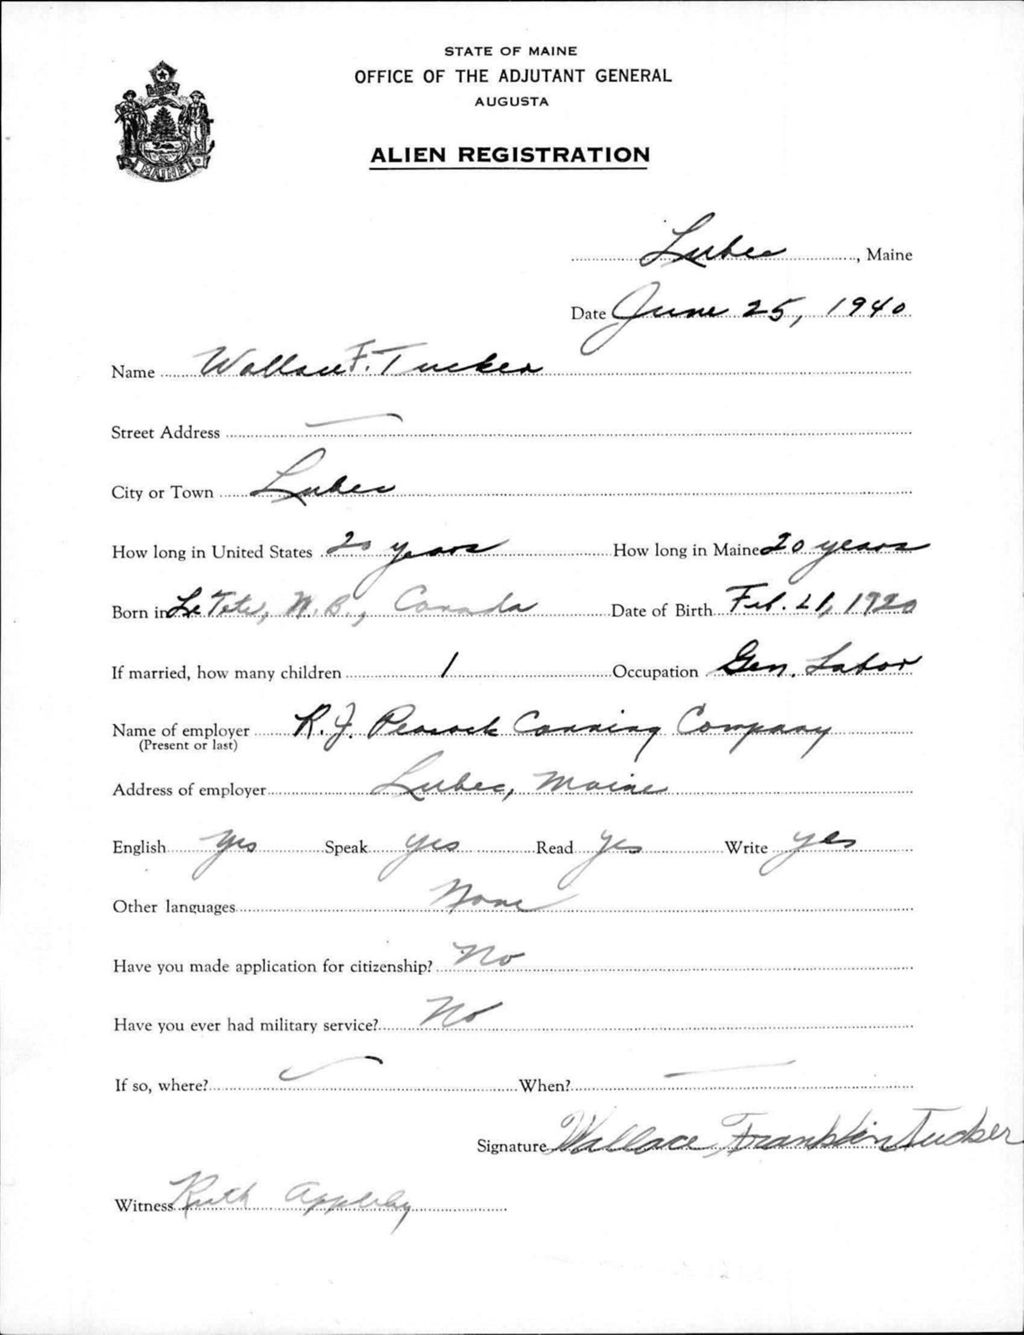 STATE OF MAINE
OFFICE OF THE ADJUTANT GENERAL
AUGUSTA
ALIEN REGISTRATION
MAINE
Lubec, Maine
Date June 25, 1940
Name Wallace F. Tucker
Street Address —
City or Town Lubec
How long in United States 20 years How long in Maine 20 years
Born in Le Tete, N.B., Canada Date of Birth Feb. 21, 1920
If married, how many children 1 Occupation Gen. Labor
Name of employer R. J. Peacock Canning Company
(Present or last)
Address of employer Lubec, Maine
English yes Speak yes Read yes Write yes
Other languages None
Have you made application for citizenship? No
Have you ever had military service? No
If so, where? — When? —
Signature Wallace Franklin Tucker
Witness Ruth Appleby